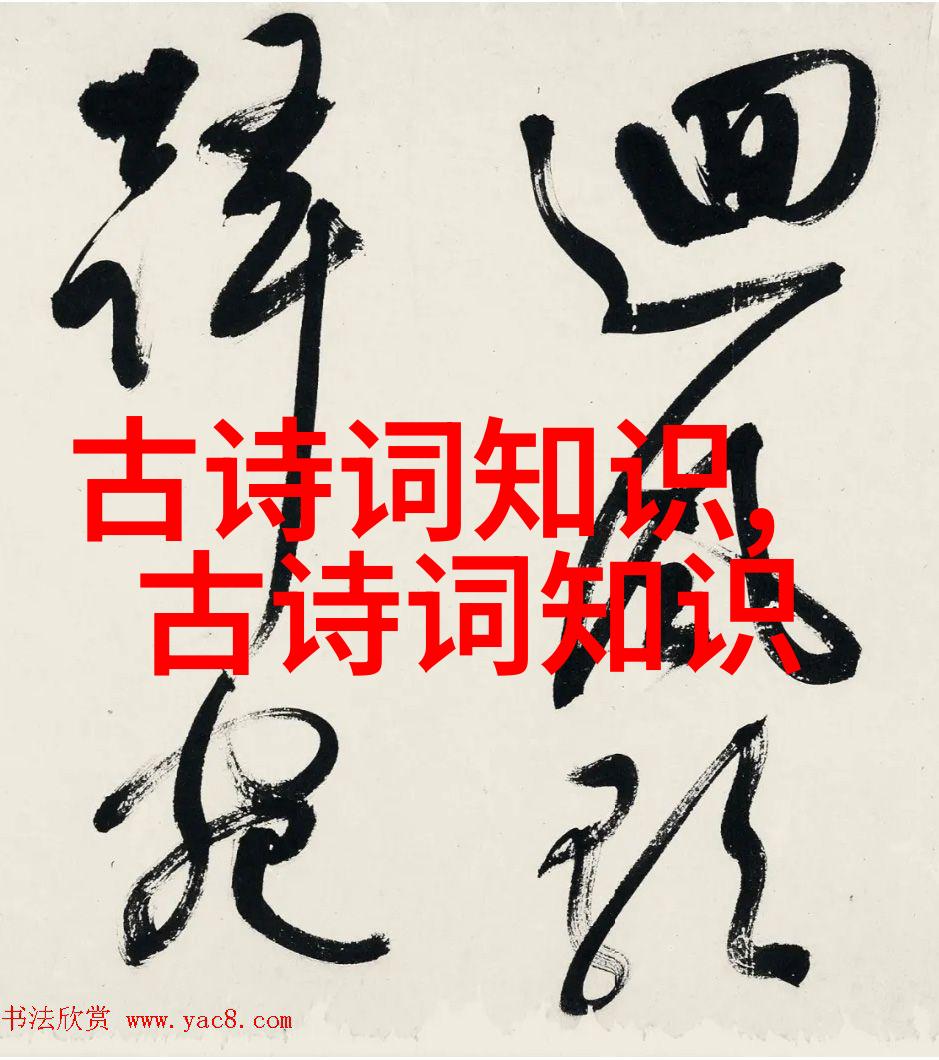 迴風
古诗词知识,
古诗词知识
书法欣赏 www.yac8.com